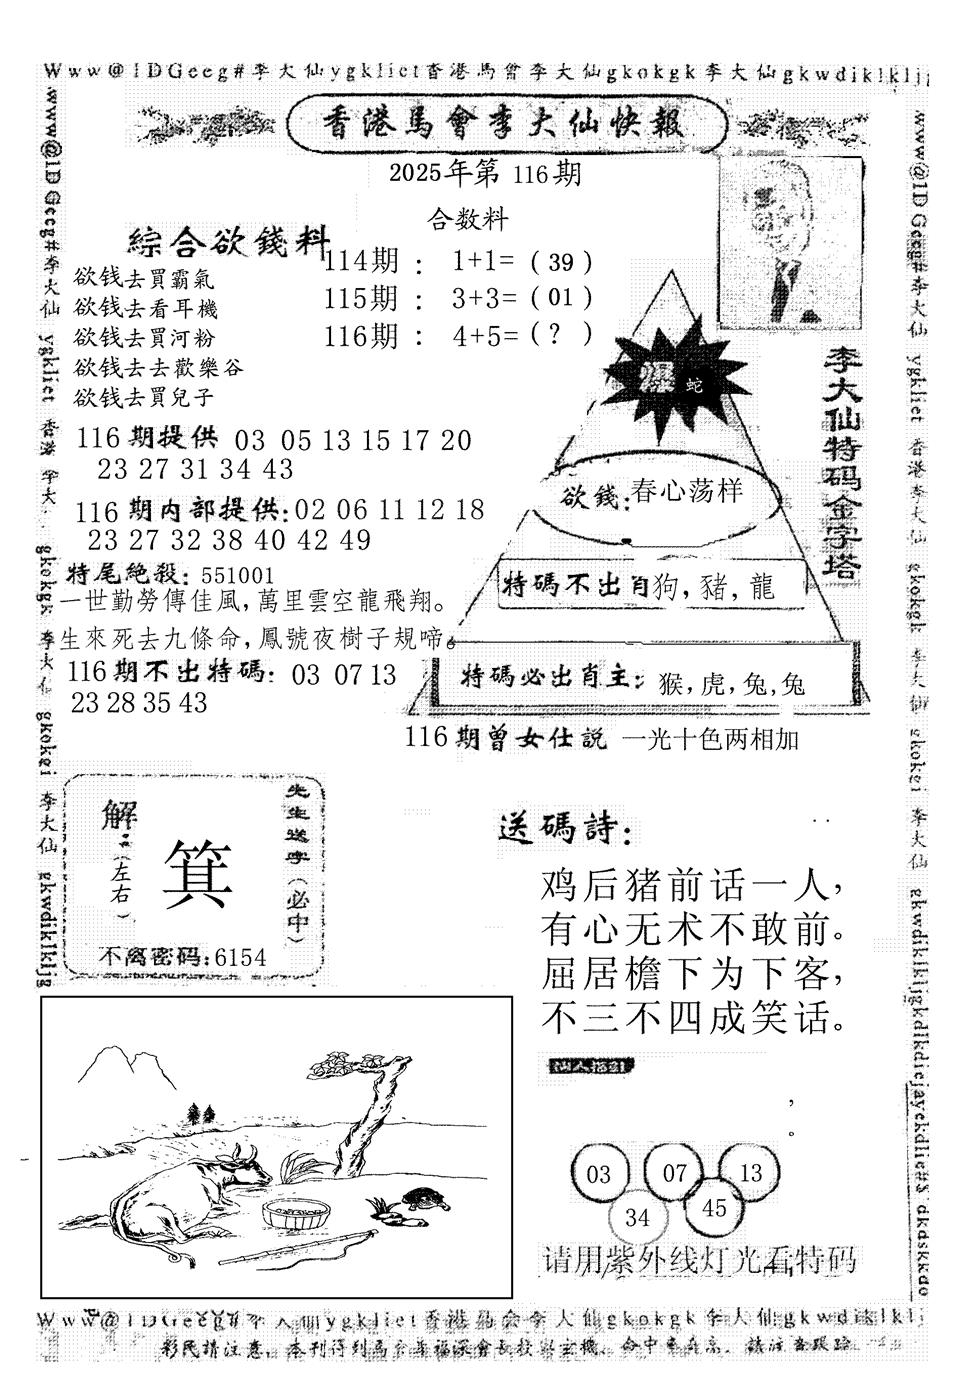 Www@1DGeeg#李大仙ygkliet香港馬會李大仙gkokgk李大仙gkwdiklkljg
香港馬會李大仙快報
2025年第 116期
合数料
綜合欲錢料
114期 ： 1+1= ( 39 )
115期 ： 3+3= ( 01 )
116期 ： 4+5= ( ？ )
欲钱去買霸氣
欲钱去看耳機
欲钱去買河粉
欲钱去去歡樂谷
欲钱去買兒子
116期提供 03 05 13 15 17 20
23 27 31 34 43
116期内部提供:02 06 11 12 18
23 27 32 38 40 42 49
特尾絶殺: 551001
一世勤勞傳佳風,萬里雲空龍飛翔。
生來死去九條命,鳳號夜樹子規啼。
116期不出特碼: 03 07 13
23 28 35 43
李大仙特码金字塔
爆 蛇
欲錢:春心荡样
特碼不出肖狗,豬,龍
特碼必出肖主: 猴,虎,兔,兔
116期曾女仕説 一光十色两相加
先生送字(必中)
解:(左右)
箕
不离密码:6154
送碼詩:
鸡后猪前话一人,
有心无术不敢前。
屈居檐下为下客,
不三不四成笑话。
,
。
03 07 13
34 45
请用紫外线灯光看特码
www@1DGeeg#李大仙 ygkliet 香港 李大 gkokgk 李大仙 gkokei 李大仙 gkwdiklkljg
www@1DGeeg#李大仙 ygkliet 香港李大仙 gkokgk 李大仙 gkokei 李大仙
Www@1DGeeg#李大仙ygkliet香港馬会李大仙gkokgk李大仙gkwdiklklj
彩民請注意,本刊得到馬